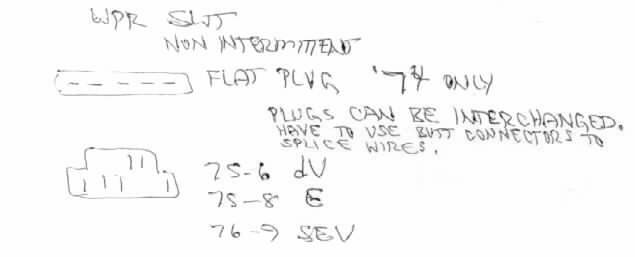 WPR SWT
NON INTERMITTENT
FLAT PLUG '74 ONLY
PLUGS CAN BE INTERCHANGED.
HAVE TO USE BUTT CONNECTORS TO
SPLICE WIRES.
75-6 dV
75-8 E
76-9 SEV